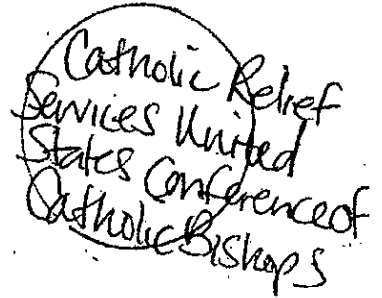 Catholic Relief
Services United
States Conference of
Catholic Bishops